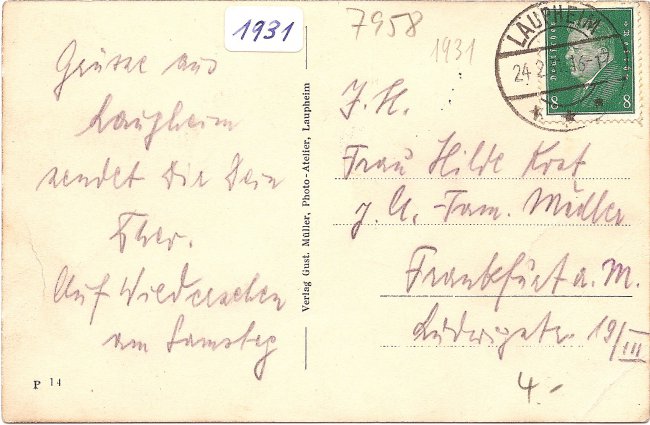 1931
7958
1931
LAUPHEIM
24.2. 16-17
Deutsches Reich
8 8
Grüsse aus
Laupheim
sendet Dir Dein
Auf Wiedersehen
am Samstag
P 14
Verlag Gust. Müller, Photo-Atelier, Laupheim
Frau Hilde
Fam. Müller
Frankfurt a. M.
Ludwigstr. 19/III
4.-